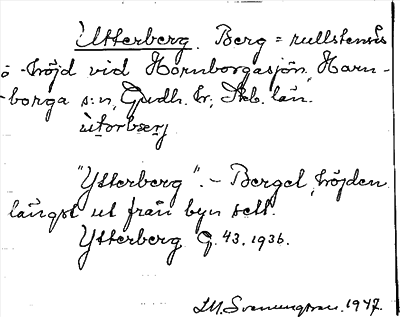 Utterberg. Berg = rullstensås
-höjd vid Hornborgasjön, Horn-
borga s:n, Gudh. hr, Skb. län.
ùtorbærj
"Ytterberg". - Berget, höjden
längst ut från byn sett.
Ytterberg G. 43. 1936.
I.M. Svenungsson. 1947.